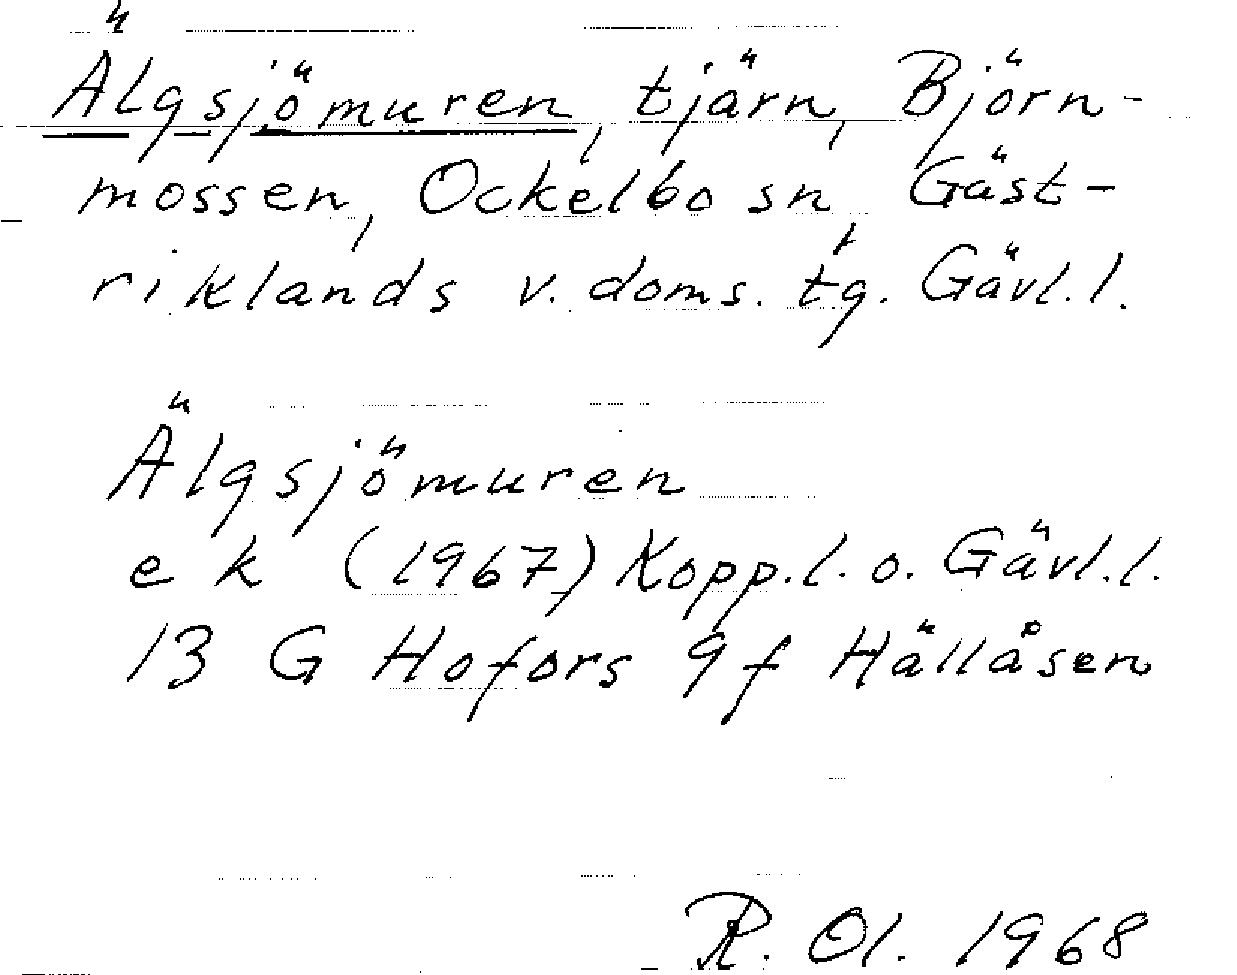 Älgsjömuren, tjärn, Björn-
mossen, Ockelbo sn, Gäst-
riklands v. doms. tg. Gävl. l.
Älgsjömuren
e k (1967) Kopp. l. o. Gävl. l.
13 G Hofors 9 f Hällåsen
R. Ol. 1968